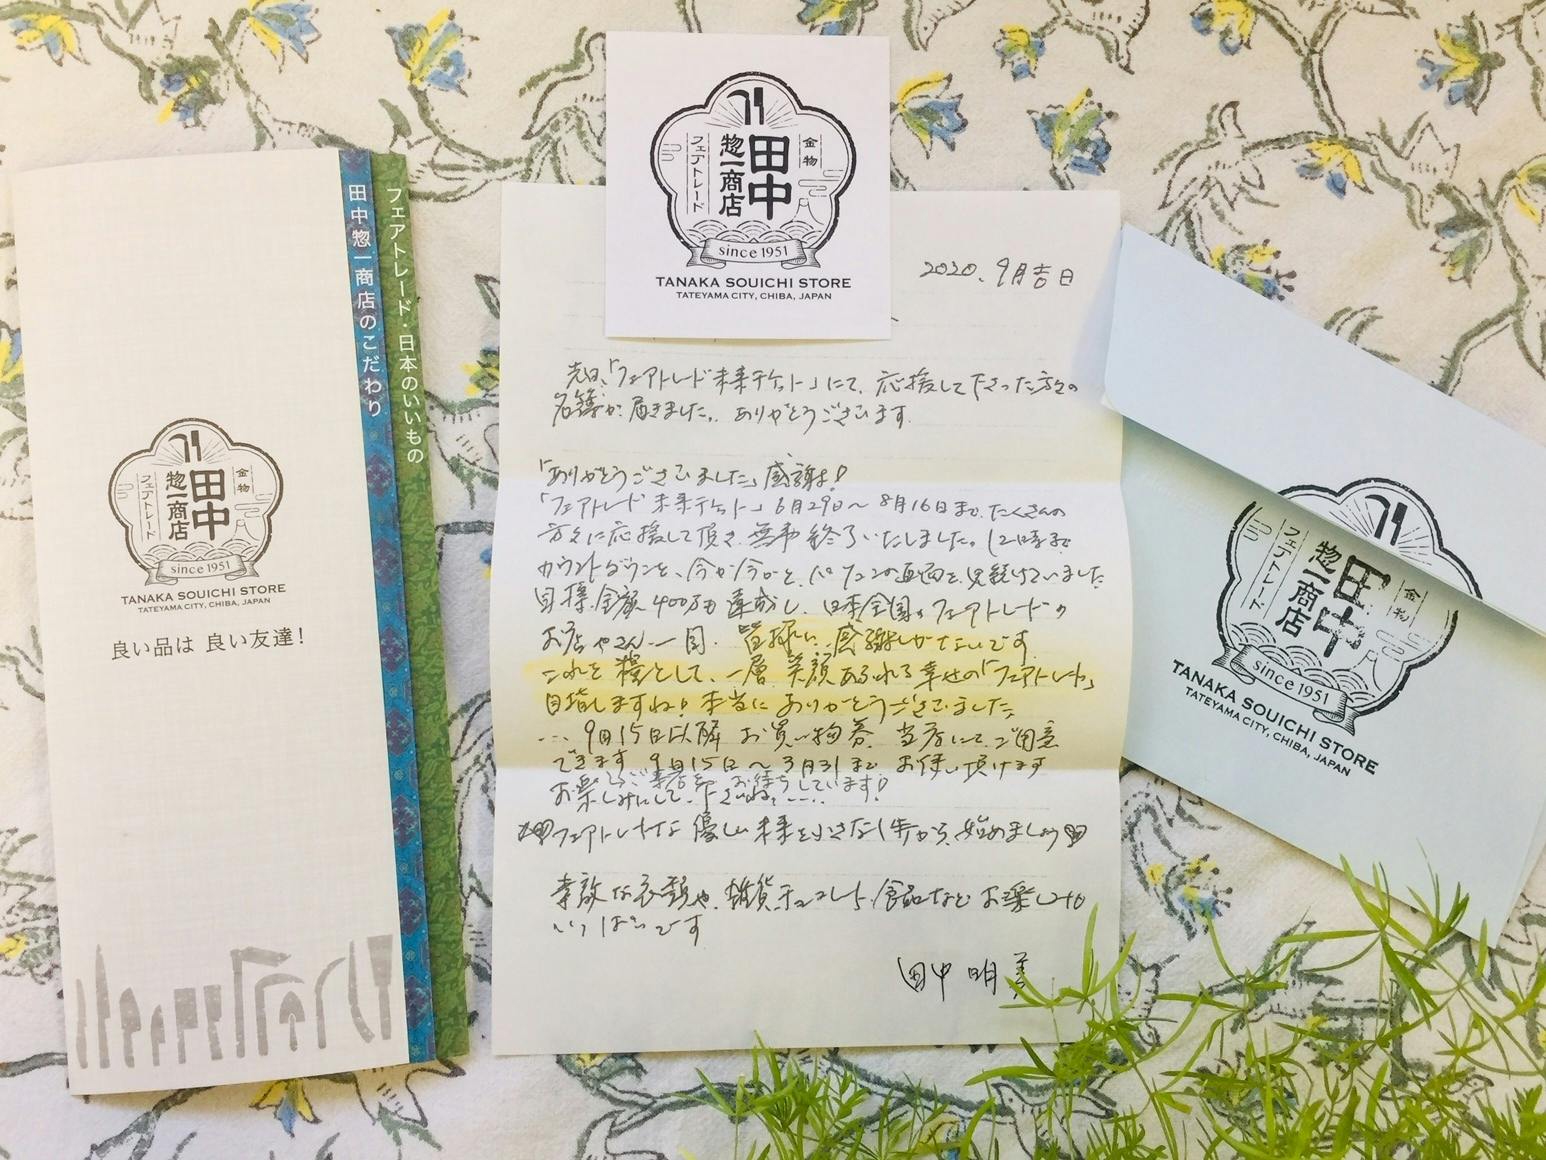 フェアトレード・日本のいいもの
田中惣一商店のこだわり
金物
田中
惣一商店
フェアトレード
since 1951
TANAKA SOUICHI STORE
TATEYAMA CITY, CHIBA, JAPAN
良い品は 良い友達!
金物
田中
惣一商店
フェアトレード
since 1951
TANAKA SOUICHI STORE
TATEYAMA CITY, CHIBA, JAPAN
2020. 9月吉日
先日、「フェアトレード未来チケット」にて、応援して下さった方々の
名簿が、届きました。ありがとうございます。
「ありがとうございました」感謝!
「フェアトレード 未来チケット」6月29日～8月16日まで、たくさんの
方々に応援して頂き、無事終了いたしました。12時まで
カウントダウンを、今か今かと、パソコンの画面を見続けていました
目標金額400万も達成し、日本全国のフェアトレードの
お店やさん一同、皆様に、感謝しかないです。
これを糧として、一層 笑顔あふれる幸せの「フェアトレード」
目指しますね! 本当に ありがとうございました。
… 9月15日以降 お買い物券、当店にて、ご用意
できます。9月15日～3月31日まで お使い頂けます
ご来店を お待ちしています!
お楽しみにして、下さいね
フェアトレードな 優しい未来を小さな1歩から、始めましょう
素敵な衣類や、雑貨、チョコレート、食品など お楽しみ
いっぱいです
田中 明美
金物
田中
惣一商店
フェアトレード
since 1951
TANAKA SOUICHI STORE
TATEYAMA CITY, CHIBA, JAPAN